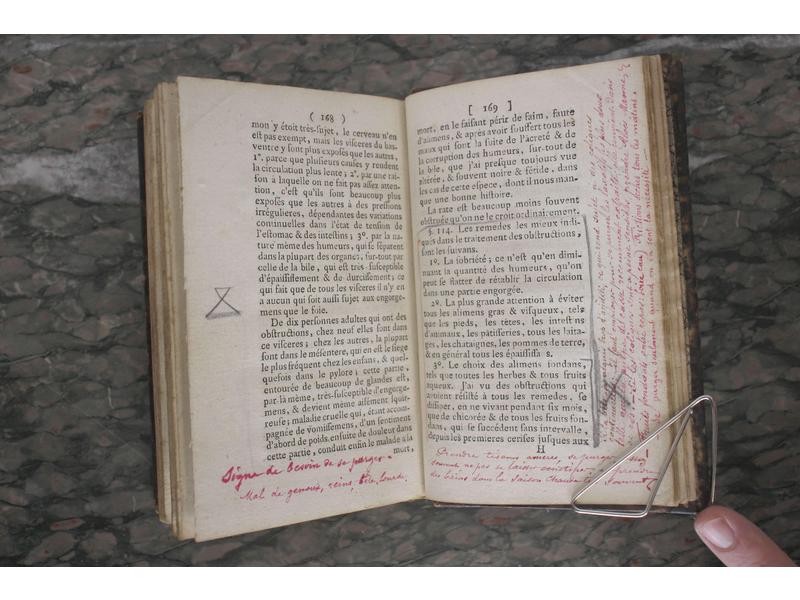 ( 168 )
mon y étoit très-sujet, le cerveau n'en
est pas exempt, mais les visceres du bas-
ventre y sont plus exposés que les autres,
1°. parce que plusieurs causes y rendent
la circulation plus lente ; 2°. par une rai-
son à laquelle on ne fait pas assez atten-
tion, c'est qu'ils sont beaucoup plus
exposés que les autres à des pressions
irrégulieres, dépendantes des variations
continuelles dans l'état de tension de
l'estomac & des intestins ; 3°. par la na-
ture même des humeurs, qui se séparent
dans la plupart des organes, sur-tout par
celle de la bile, qui est très-susceptible
d'épaississement & de durcissement ; ce
qui fait que de tous les visceres il n'y en
a aucun qui soit aussi sujet aux engorge-
mens que le foie.
De dix personnes adultes qui ont des
obstructions, chez neuf elles sont dans
ce viscere ; chez les autres, la plupart
sont dans le mésentere, qui en est le siege
le plus fréquent chez les enfans, & quel-
quefois dans le pylore ; cette partie,
entourée de beaucoup de glandes est,
par-là même, très-susceptible d'engorge-
mens, & devient même aisément squir-
reuse ; maladie cruelle qui, étant accom-
pagnée de vomissemens, d'un sentiment
d'abord de poids, ensuite de douleur dans
cette partie, conduit enfin le malade à la
mort,
Signe de besoin de se purger.
Mal de genoux, reins, tête lourde.
[ 169 ]
mort, en le faisant périr de faim, faute
d'alimens, & après avoir souffert tous les
maux qui sont la suite de l'âcreté & de
la corruption des humeurs, sur-tout de
la bile, que j'ai presque toujours vue
altérée, & souvent noire & fétide, dans
les cas de cette espece, dont il nous man-
que une bonne histoire.
La rate est beaucoup moins souvent
obstruée qu'on ne le croit ordinairement.
§. 114. Les remedes les mieux indi-
qués dans le traitement des obstructions,
sont les suivans.
1°. La sobriété ; ce n'est qu'en dimi-
nuant la quantité des humeurs, qu'on
peut se flatter de rétablir la circulation
dans une partie engorgée.
2°. La plus grande attention à éviter
tous les alimens gras & visqueux, tels
que les pieds, les têtes, les intestins
d'animaux, les pâtisseries, tous les laita-
ges, les chataignes, les pommes de terre,
& en général tous les épaississans.
3°. Le choix des alimens fondans,
tels que toutes les herbes & tous fruits
aqueux. J'ai vu des obstructions qui
avoient résisté à tous les remedes, se
dissiper, en ne vivant pendant six mois,
que de chicorée & de tous les fruits fon-
dans, qui se succédent sans intervalle,
depuis les premieres cerises jusques aux
H
Prendre tisanes amères, se purger
souvent ne pas se laisser constiper. Prendre
des bains dans la saison chaude souvent